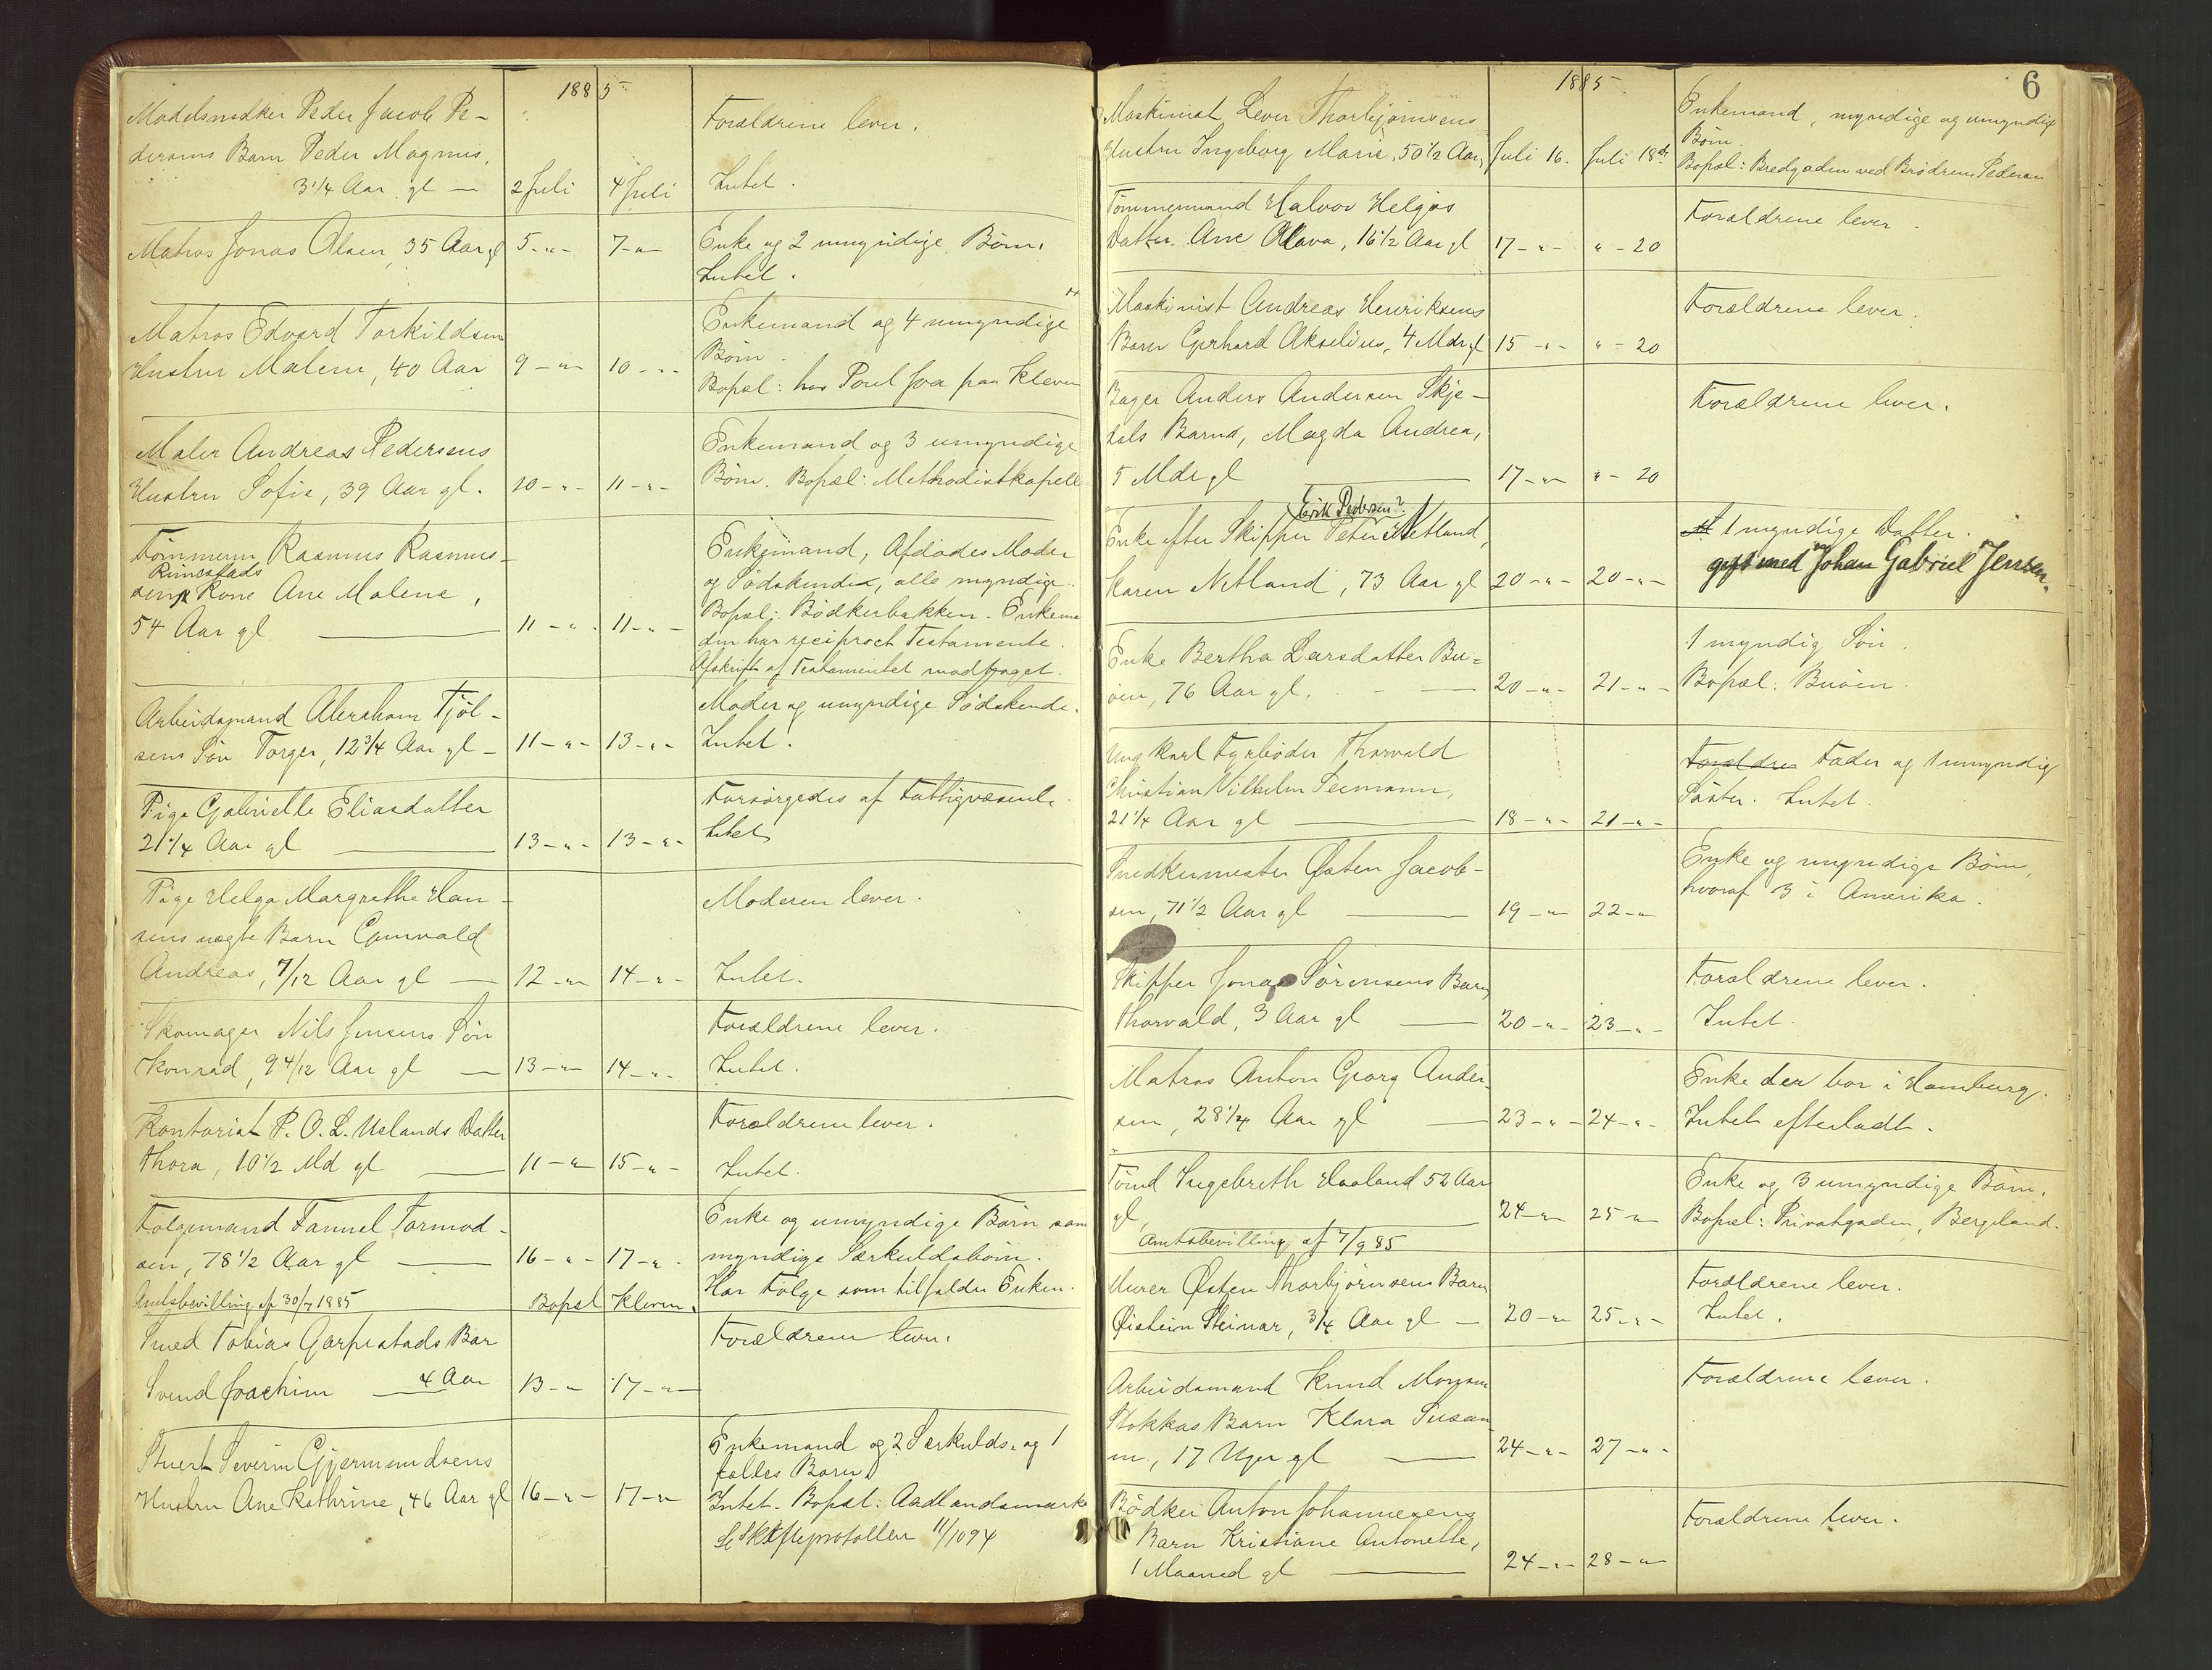 1885
Modelsnedker Peder Jacob Pe-
dersens Barn Peder Magnus,
3 1/4 Aar gl —
2 Juli
4 Juli
Forældrene lever.
Intet.
Matros Jonas Olsen, 35 Aar gl
5 - " -
7 - " -
Enke og 2 umyndige Børn.
Intet.
Matros Edvard Torkildsens
Hustru Malene, 40 Aar
9 - " -
10 - " -
Enkemand og 4 umyndige
Børn.
Bopæl: hos Poul Joa paa Kleven
Maler Andreas Pedersens
Hustru Sofie, 39 Aar gl.
10 - " -
11 - " -
Enkemand og 3 umyndige
Børn. Bopæl: Methodistkapell
Tømmerm Rasmus Rasmus-
Rimestads
sens Kone Ane Malene,
54 Aar gl —
11 - " -
11 - " -
Enkemand, Afdødes Moder
og Sødskende, alle myndige.
Bopæl: Bødkerbakken. Enkeman
den har reciproct Testamente.
Afskrift af Testamentet modtaget.
Arbeidsmand Abraham Tjøl-
sens Søn Torger, 12 3/4 Aar gl -
11 - " -
13 - " -
Moder og umyndige Sødskende.
Intet.
Pige Gabrielle Eliasdatter
21 1/4 Aar gl —
13 - " -
13 - " -
Forsørgedes af Fattigvæsenet.
Intet
Pige Helga Margrethe Han-
sens uægte Barn Gunvald
Andreas, 7/12 Aar gl —
12 - " -
14 - " -
Moderen lever.
Intet.
Skomager Nils Jensens Søn
Konrad, 9 4/12 Aar gl —
13 - " -
14 - " -
Forældrene lever.
Intet.
Kontorist P. O. L. Uelands Datter
Thora, 10 1/2 Md gl —
11 - " -
15 - " -
Forældrene lever.
Intet.
Følgemand Tormod-
sen, 78 1/2 Aar gl —
16 - " -
17 - " -
Enke og umyndige Børn sam
myndige Særkuldsbørn.
Har Følge som tilfalder Enken.
Amtsbevilling af 30/7 1885
Bopæl Kleven.
Smed Tobias Garpestads Bar
Svend Joachim — 4 Aar
13 - "
17 - " -
Forældrene lever.
Stuert Severin Gjermundsens
Hustru Ane Kathrine, 46 Aar gl
16 - " -
17 - " -
Enkemand og 2 Særkulds- og 1
fælles Barn
Intet. Bopæl: Aadlandsmarke
Se Skifteprotokollen 11/1094
1885
6
Maskinist Lever Thorbjørnsens
Hustru Ingeborg Marie, 50 1/2 Aar,
Juli 16.
Juli 18de
Enkemand, myndige og umyndige
Børn.
Bopæl: Bredgaden ved Brødrene Pedersen
Tømmermand Halvor Helgøs
Datter Ane Olava, 16 1/2 Aar gl
17 - " -
" - 20
Forældrene lever.
Maskinist Andreas Henriksens
Barn Gerhard Akselius, 4 Mdr gl
15 - " -
" - 20
Forældrene lever.
Bager Anders Andersen Skje-
dals Barns, Magda Andrea,
5 Mdr gl —
17 - " -
" - 20
Forældrene lever.
Erik Pedersen?
Enke efter Skipper Peter Netland,
Karen Netland, 73 Aar gl
20 - " -
20 - " -
1 myndige Datter.
gift med Johan Gabriel Jensen.
Enke Bertha Larsdatter Bu-
øen, 76 Aar gl. —
20 - " -
21 - " -
1 myndig Søn.
Bopæl: Buøen.
Ungkarl Fyrbøder Thorvald
Christian Vilhelm Seemann,
21 1/4 Aar gl —
18 - " -
21 - " -
Forældre Fader og 1 umyndig
Søster. Intet.
Snedkermester Østen Jacob-
sen, 71 1/2 Aar gl —
19 - " -
22 - " -
Enke og myndige Børn,
hvoraf 3 i Amerika.
Skipper Jonas Sørensens Barn
Thorvald, 3 Aar gl —
20 - " -
23 - " -
Forældrene lever.
Intet.
Matros Anton Georg Ander-
sen, 28 1/4 Aar gl —
23 - " -
24 - " -
Enke der bor i Hamburg.
Intet efterladt.
Tømd Ingebreth Haaland 52 Aar
gl, —
24 - " -
25 - "
Enke og 3 umyndige Børn.
Bopæl: Privatgaden, Bergeland.
Amtsbevilling af 7/9 85
Murer Østen Thorbjørnsens Barn
Øistein Steinar, 3/4 Aar gl —
20 - " -
25 - " -
Forældrene lever.
Intet.
Arbeidsmand Knud Monsen
Stokkas Barn Klara Susan
ne, 17 Uger gl —
24 - " -
27 - " -
Forældrene lever.
Bødker Anton Johannesens
Barn Kristiane Antonette,
1 Maaned gl —
24 - " -
28 - " -
Forældrene lever.